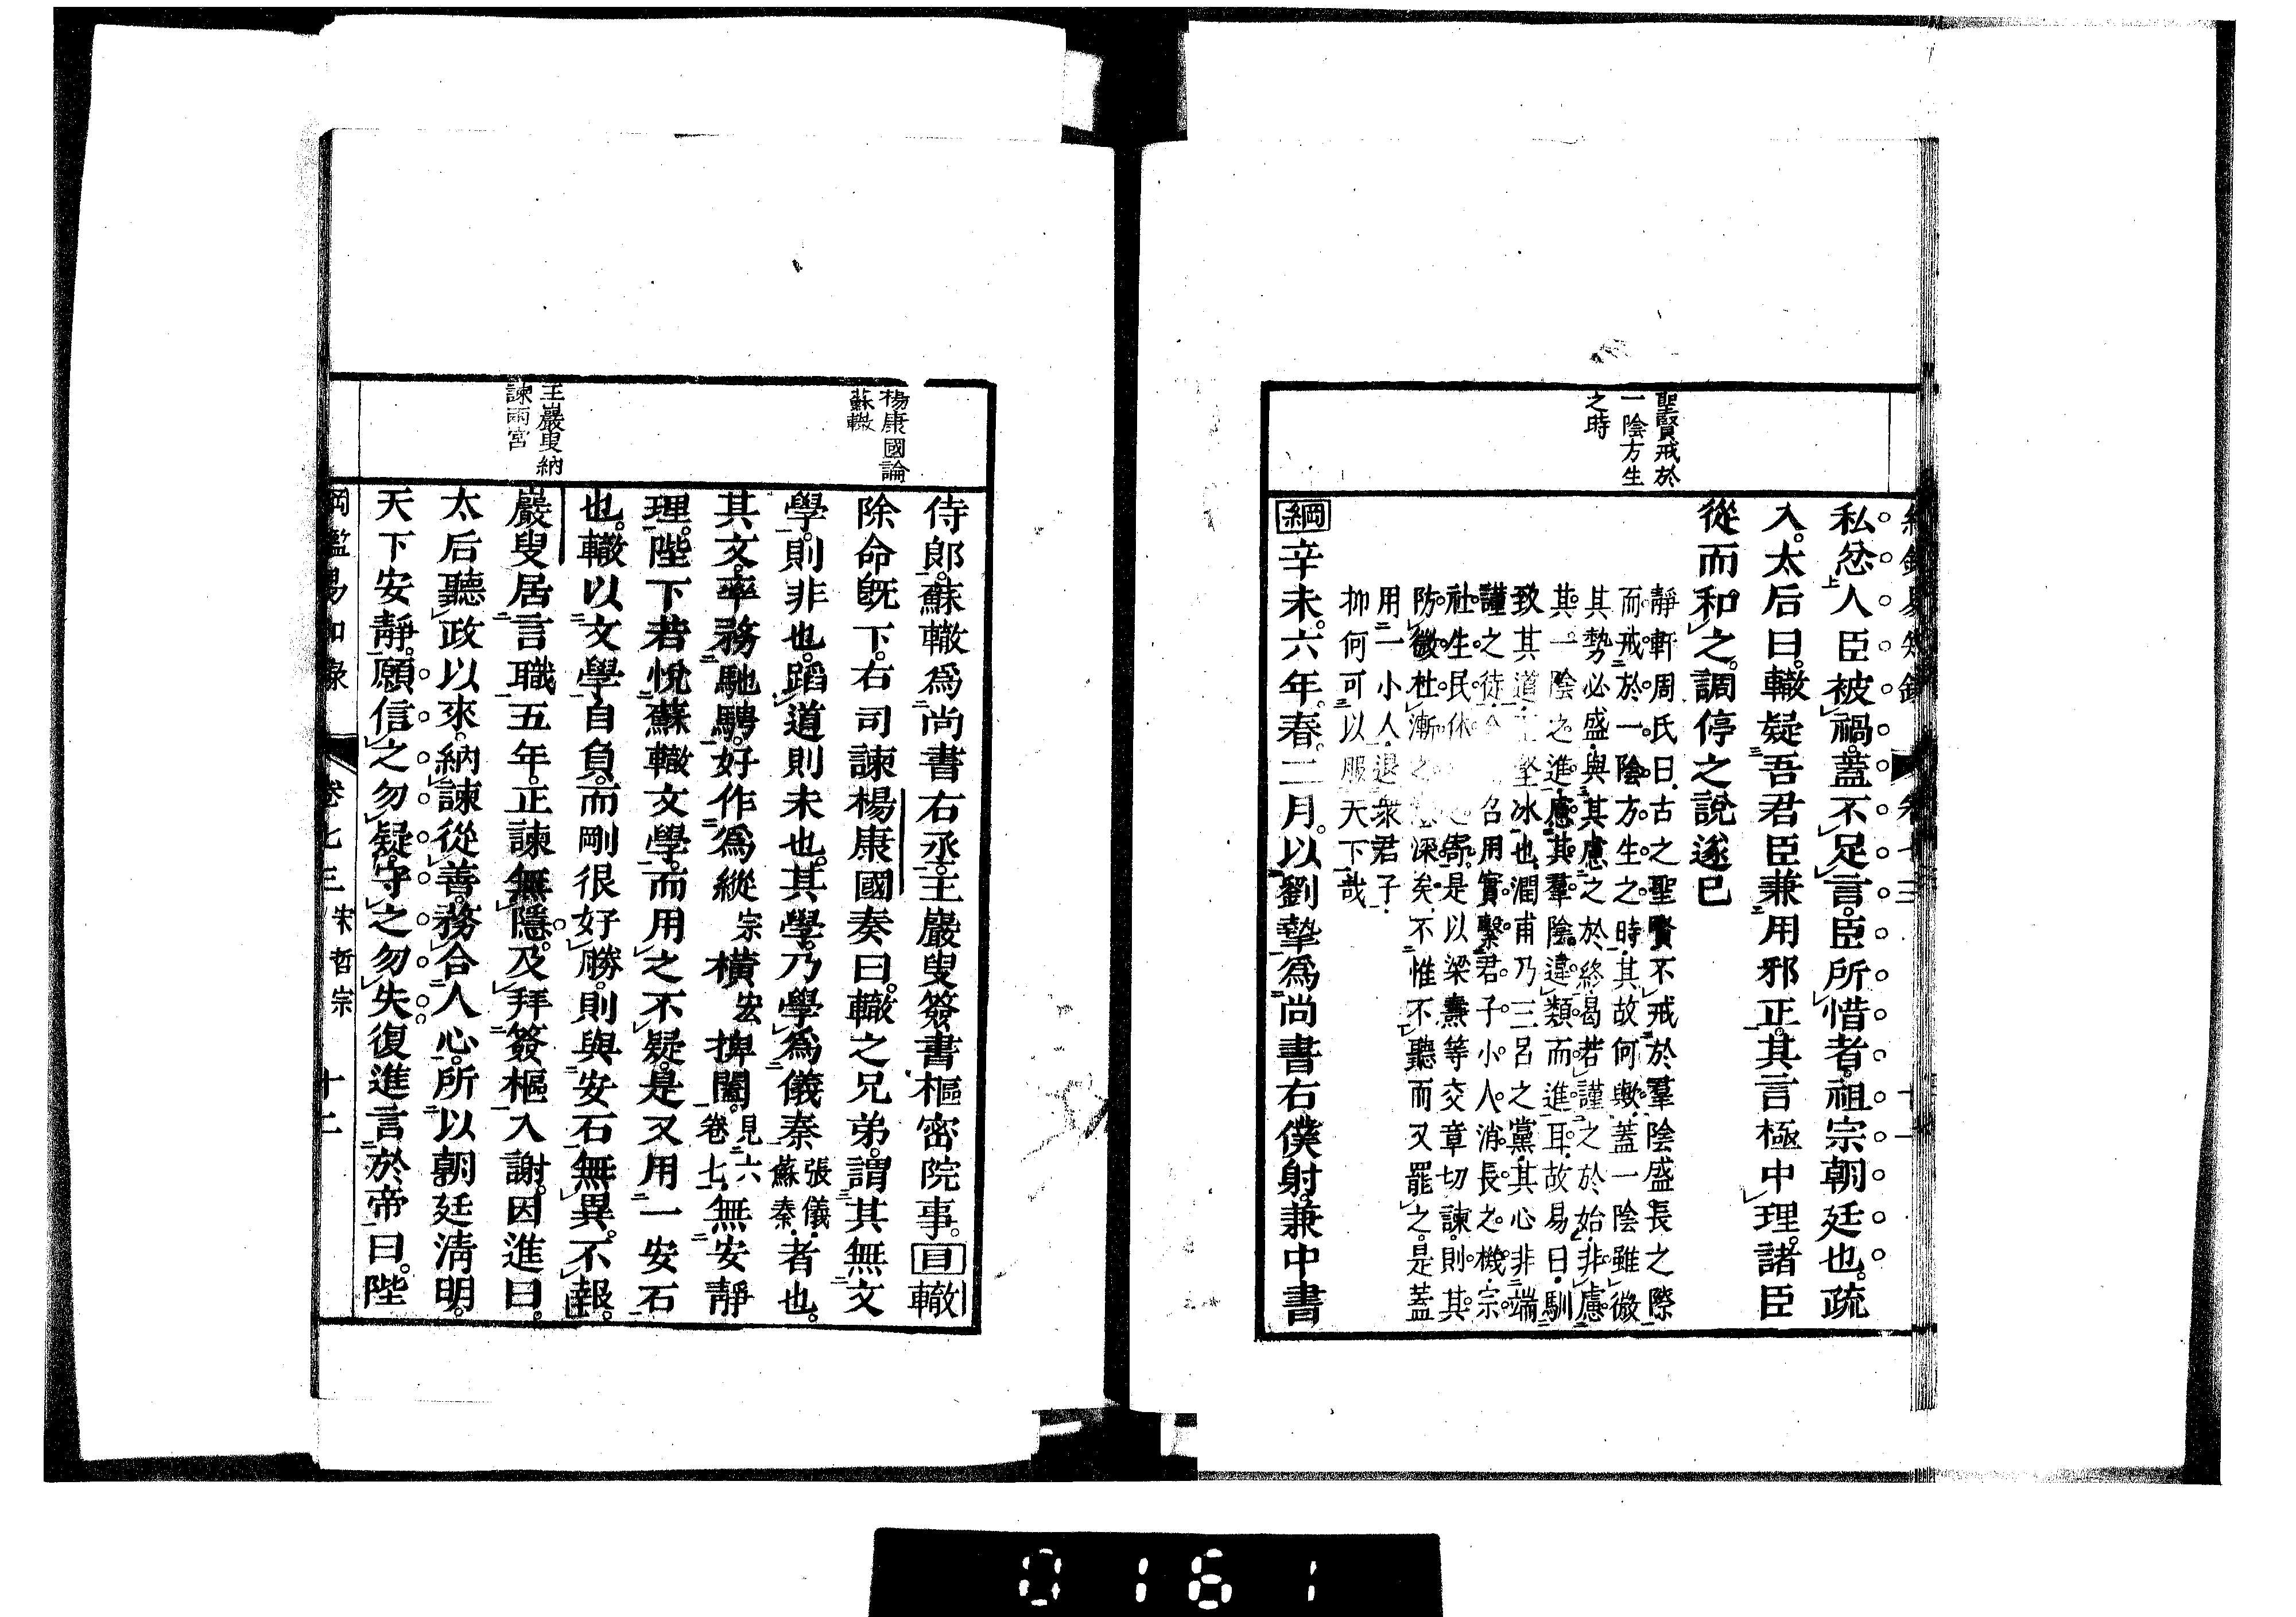 聖賢戒於
一陰方生
之時
私忿人臣被禍蓋不足言臣所惜者祖宗朝廷也疏
入太后曰轍疑吾君臣兼用邪正其言極中理諸臣
從而和之調停之說遂已
靜軒周氏曰古之聖賢不戒於羣陰盛長之際
而戒於一陰方生之時其故何歟蓋一陰雖微
其勢必盛與其慮之於終曷若謹之於始非慮
其一陰之進慮其羣陰違類而進耳故易曰馴
致其道至堅冰也潤甫乃三呂之黨其心非端
謹之徒 召用實繫君子小人消長之機宗
社生民休 之寄是以梁燾等交章切諫則其
防微杜漸之 深矣不惟不聽而又罷之是蓋
用一小人退衆君子
抑何可以服天下哉
綱辛未六年春二月以劉摯爲尚書右僕射兼中書
楊康國論
蘇轍
王巖叟納
諫兩宮
侍郎蘇轍爲尚書右丞王巖叟簽書樞密院事目轍
除命旣下右司諫楊康國奏曰轍之兄弟謂其無文
學則非也蹈道則未也其學乃學爲儀秦張儀蘇秦者也
其文率務馳騁好作爲縱宗橫宏捭闔見六卷七無安靜
理陛下若悅蘇轍文學而用之不疑是又用一安石
也轍以文學自負而剛很好勝則與安石無異不報
巖叟居言職五年正諫無隱及拜簽樞入謝因進曰
太后聽政以來納諫從善務合人心所以朝廷淸明
天下安靜願信之勿疑守之勿失復進言於帝曰陛
綱鑑易知錄 卷七三 宋哲宗 十二